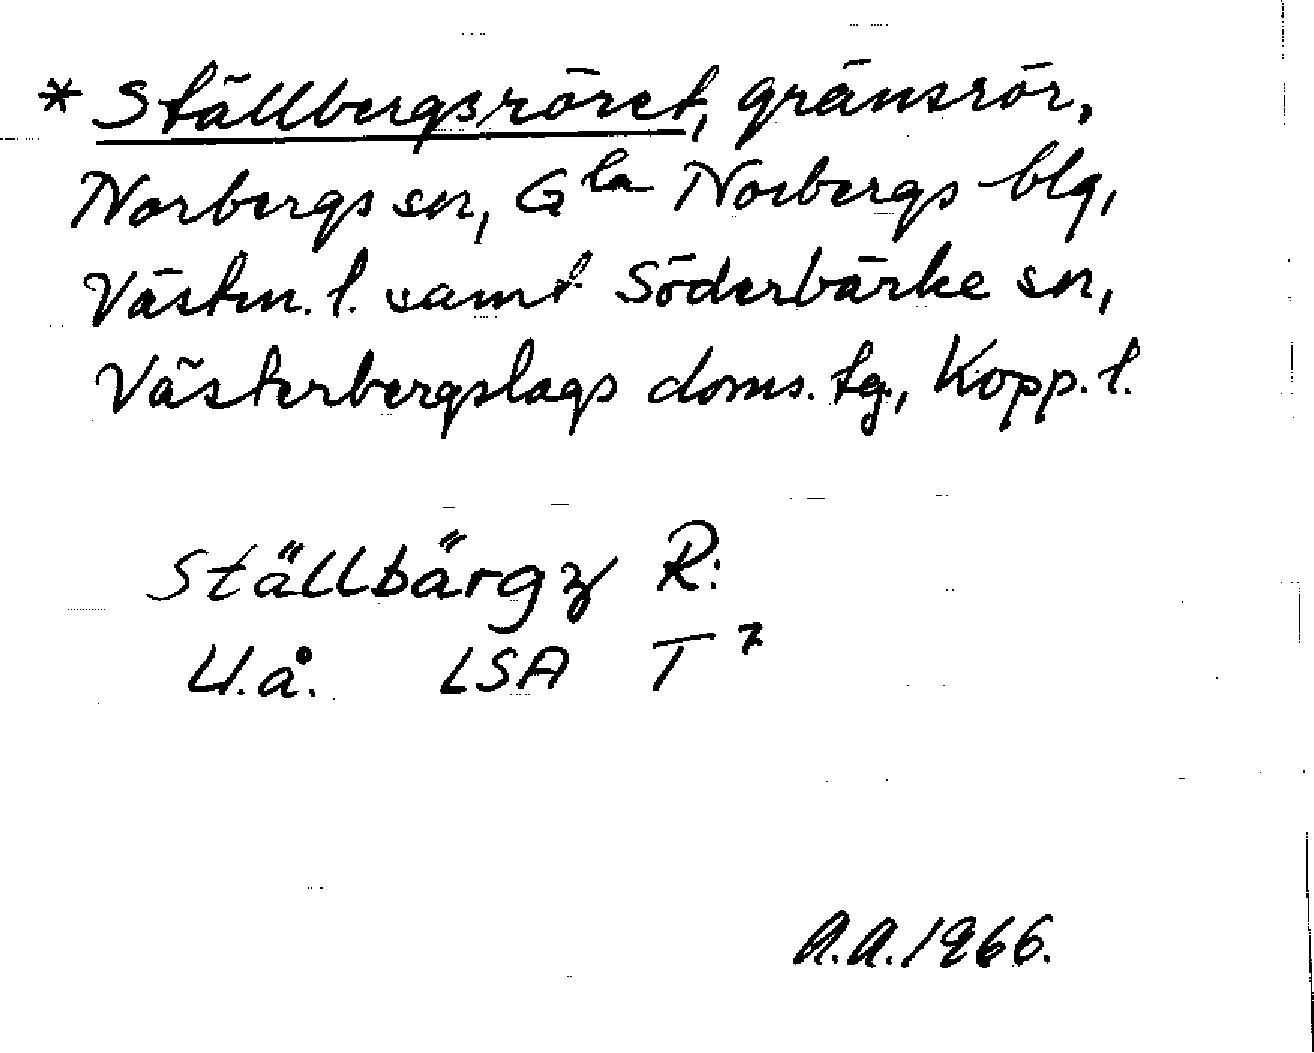 * Ställbergsröret, gränsrör,
Norbergs sn, Gla Norbergs blg,
Västm. l. samt Söderbärke sn,
Västerbergslags doms. tg., Kopp. l.
Ställbärgz R:
U.å. LSA T 7
A.A. 1966.